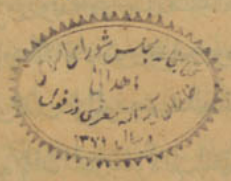 کتابخانه مجلس شورای اسلامی
اهدائی
خاندان آیة الله معزی دزفولی
در سال ۱۳۷۹